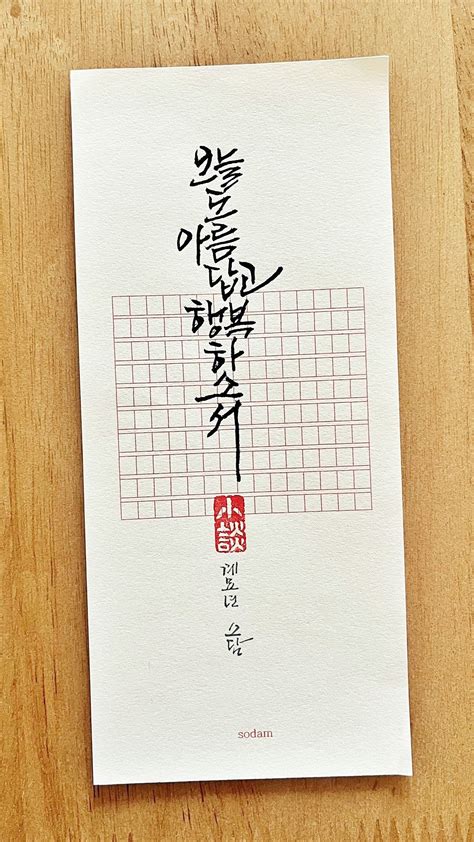 오늘
도
아름
답고
행복
하
소
서
小
談
계묘년 소담
sodam